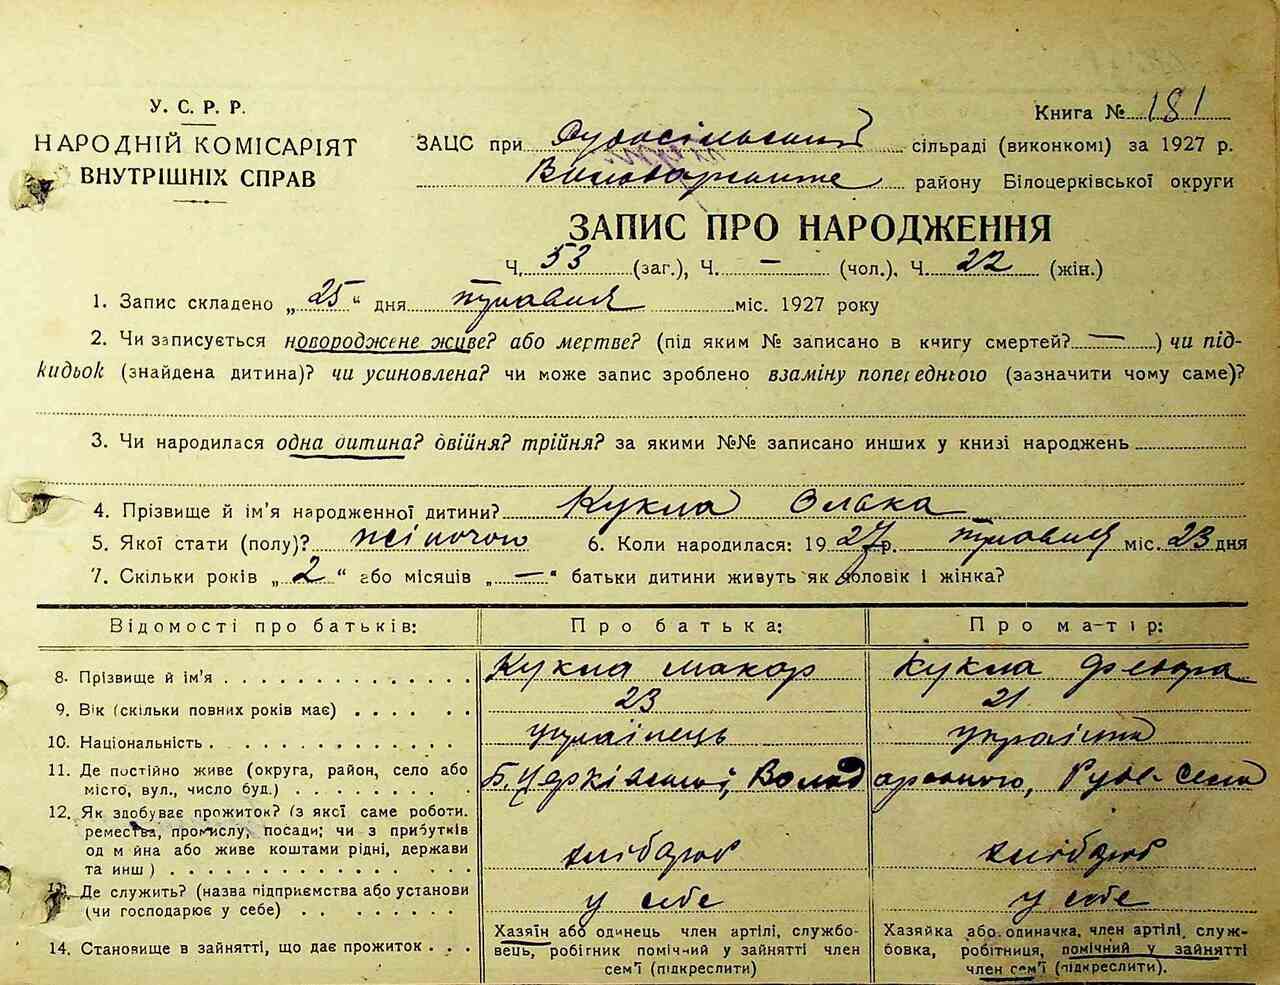 У. С. Р. Р.
НАРОДНІЙ КОМІСАРІЯТ
ВНУТРІШНІХ СПРАВ
Книга № 181
ЗАЦС при Рудосільський сільраді (виконкомі) за 1927 р.
району Білоцерківської округи
ЗАПИС ПРО НАРОДЖЕННЯ
Ч. 53 (заг.), Ч. — (чол.), Ч. 22 (жін.)
1. Запис складено „ 25 “ дня травня міс. 1927 року
2. Чи записується новороджене живе? або мертве? (під яким № записано в книгу смертей? — ) чи під-
кидьок (знайдена дитина)? чи усиновлена? чи може запис зроблено взаміну попереднього (зазначити чому саме)?
3. Чи народилася одна дитина? двійня? трійня? за якими №№ записано инших у книзі народжень
4. Прізвище й ім'я народженної дитини? Кукла Олька
5. Якої стати (полу)? жіночого 6. Коли народилася: 1927 р. травня міс. 23 дня
7. Скільки років „ 2 “ або місяців „ — “ батьки дитини живуть як чоловік і жінка?
Відомості про батьків: Про батька: Про матір:
8. Прізвище й ім'я Кукла Макар Кукла Федора
9. Вік (скільки повних років має) 23 21
10. Національність українець українка
11. Де постійно живе (округа, район, село або
місто, вул., число буд.) Б. Церківської, Володарського, Руде-Село
12. Як здобуває прожиток? (з якої саме роботи.
ремества, промислу, посади; чи з прибутків
од майна або живе коштами рідні, держави
та инш) хлібороб хлібороб
13. Де служить? (назва підприємства або установи
(чи господарює у себе) у себе у себе
14. Становище в зайнятті, що дає прожиток
Хазяїн або одинець член артілі, службо-
вець, робітник помічний у зайнятті член
сем'ї (підкреслити)
Хазяйка або одиначка, член артілі, служ-
бовка, робітниця, помічний у зайнятті
член сем'ї (підкреслити).